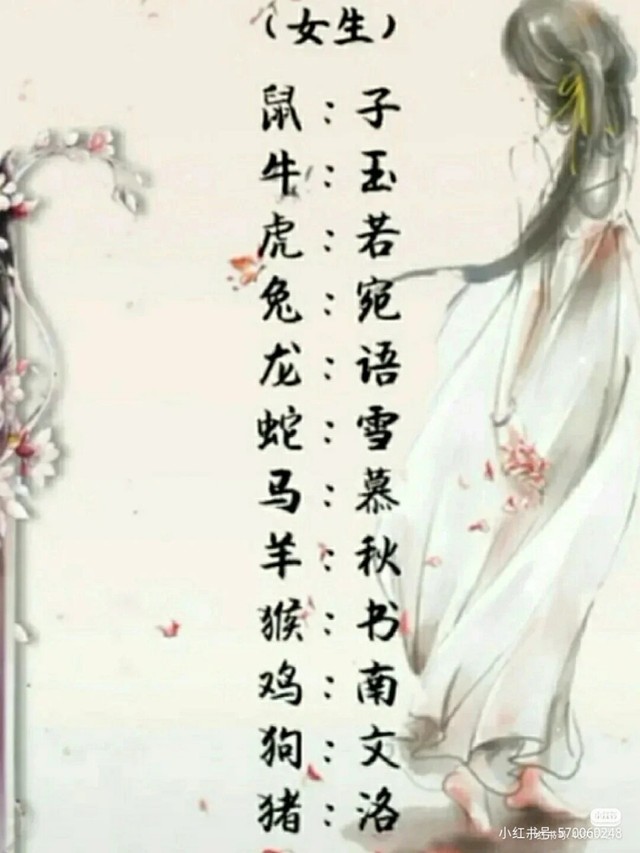 （女生）
鼠：子
牛：玉
虎：若
兔：宛
龙：语
蛇：雪
马：慕
羊：秋
猴：书
鸡：南
狗：文
猪：洛
小红书号:570060248